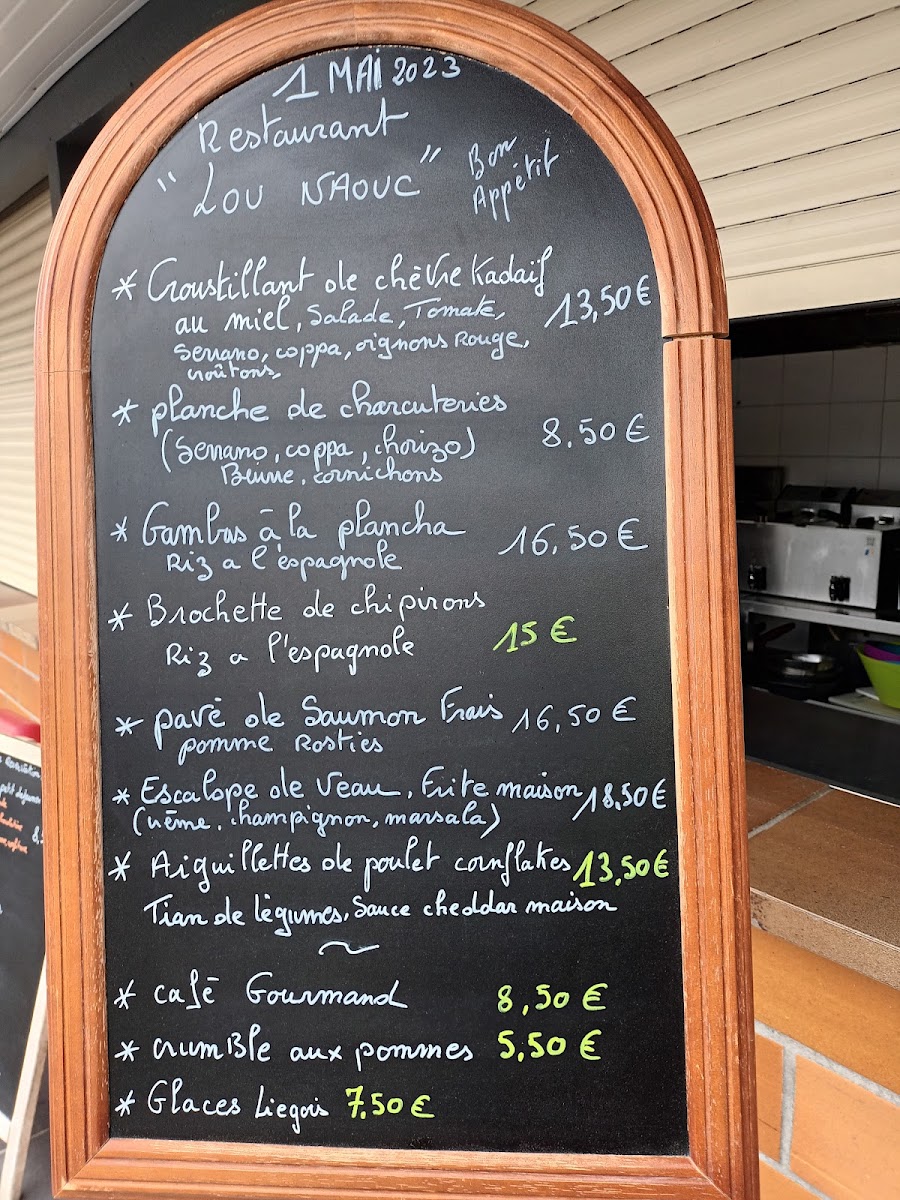 1 MAi 2023
Restaurant
" LOU NAOUC "
Bon
Appétit
* Croustillant de chèvre Kadaïf
au miel, Salade, Tomate,
Serrano, coppa, oignons Rouge,
croûtons,
13,50 €
* planche de charcuteries
(Serrano, coppa, chorizo)
Beurre, cornichons
8.50 €
* Gambas à la plancha
Riz a l'espagnole
16,50 €
* Brochette de chipirons
Riz a l'espagnole
15 €
* pavé de Saumon Frais 16,50 €
pomme Rosties
* Escalope de Veau, Frite maison 18.50 €
(crème, champignon, marsala)
* Aiguillettes de poulet cornflakes 13,50 €
Tian de légumes, Sauce cheddar maison
* café Gourmand 8,50 €
* crumBle aux pommes 5,50 €
* Glaces Liegois 7,50 €